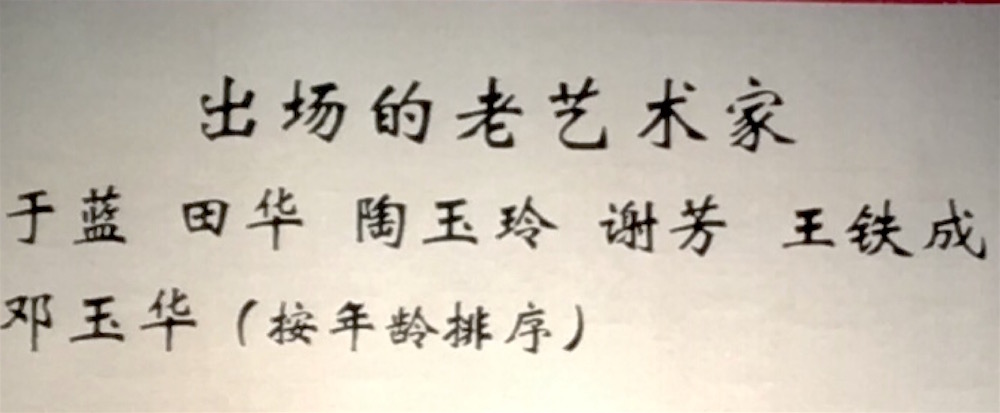 出场的老艺术家
于蓝 田华 陶玉玲 谢芳 王铁成
邓玉华（按年龄排序）